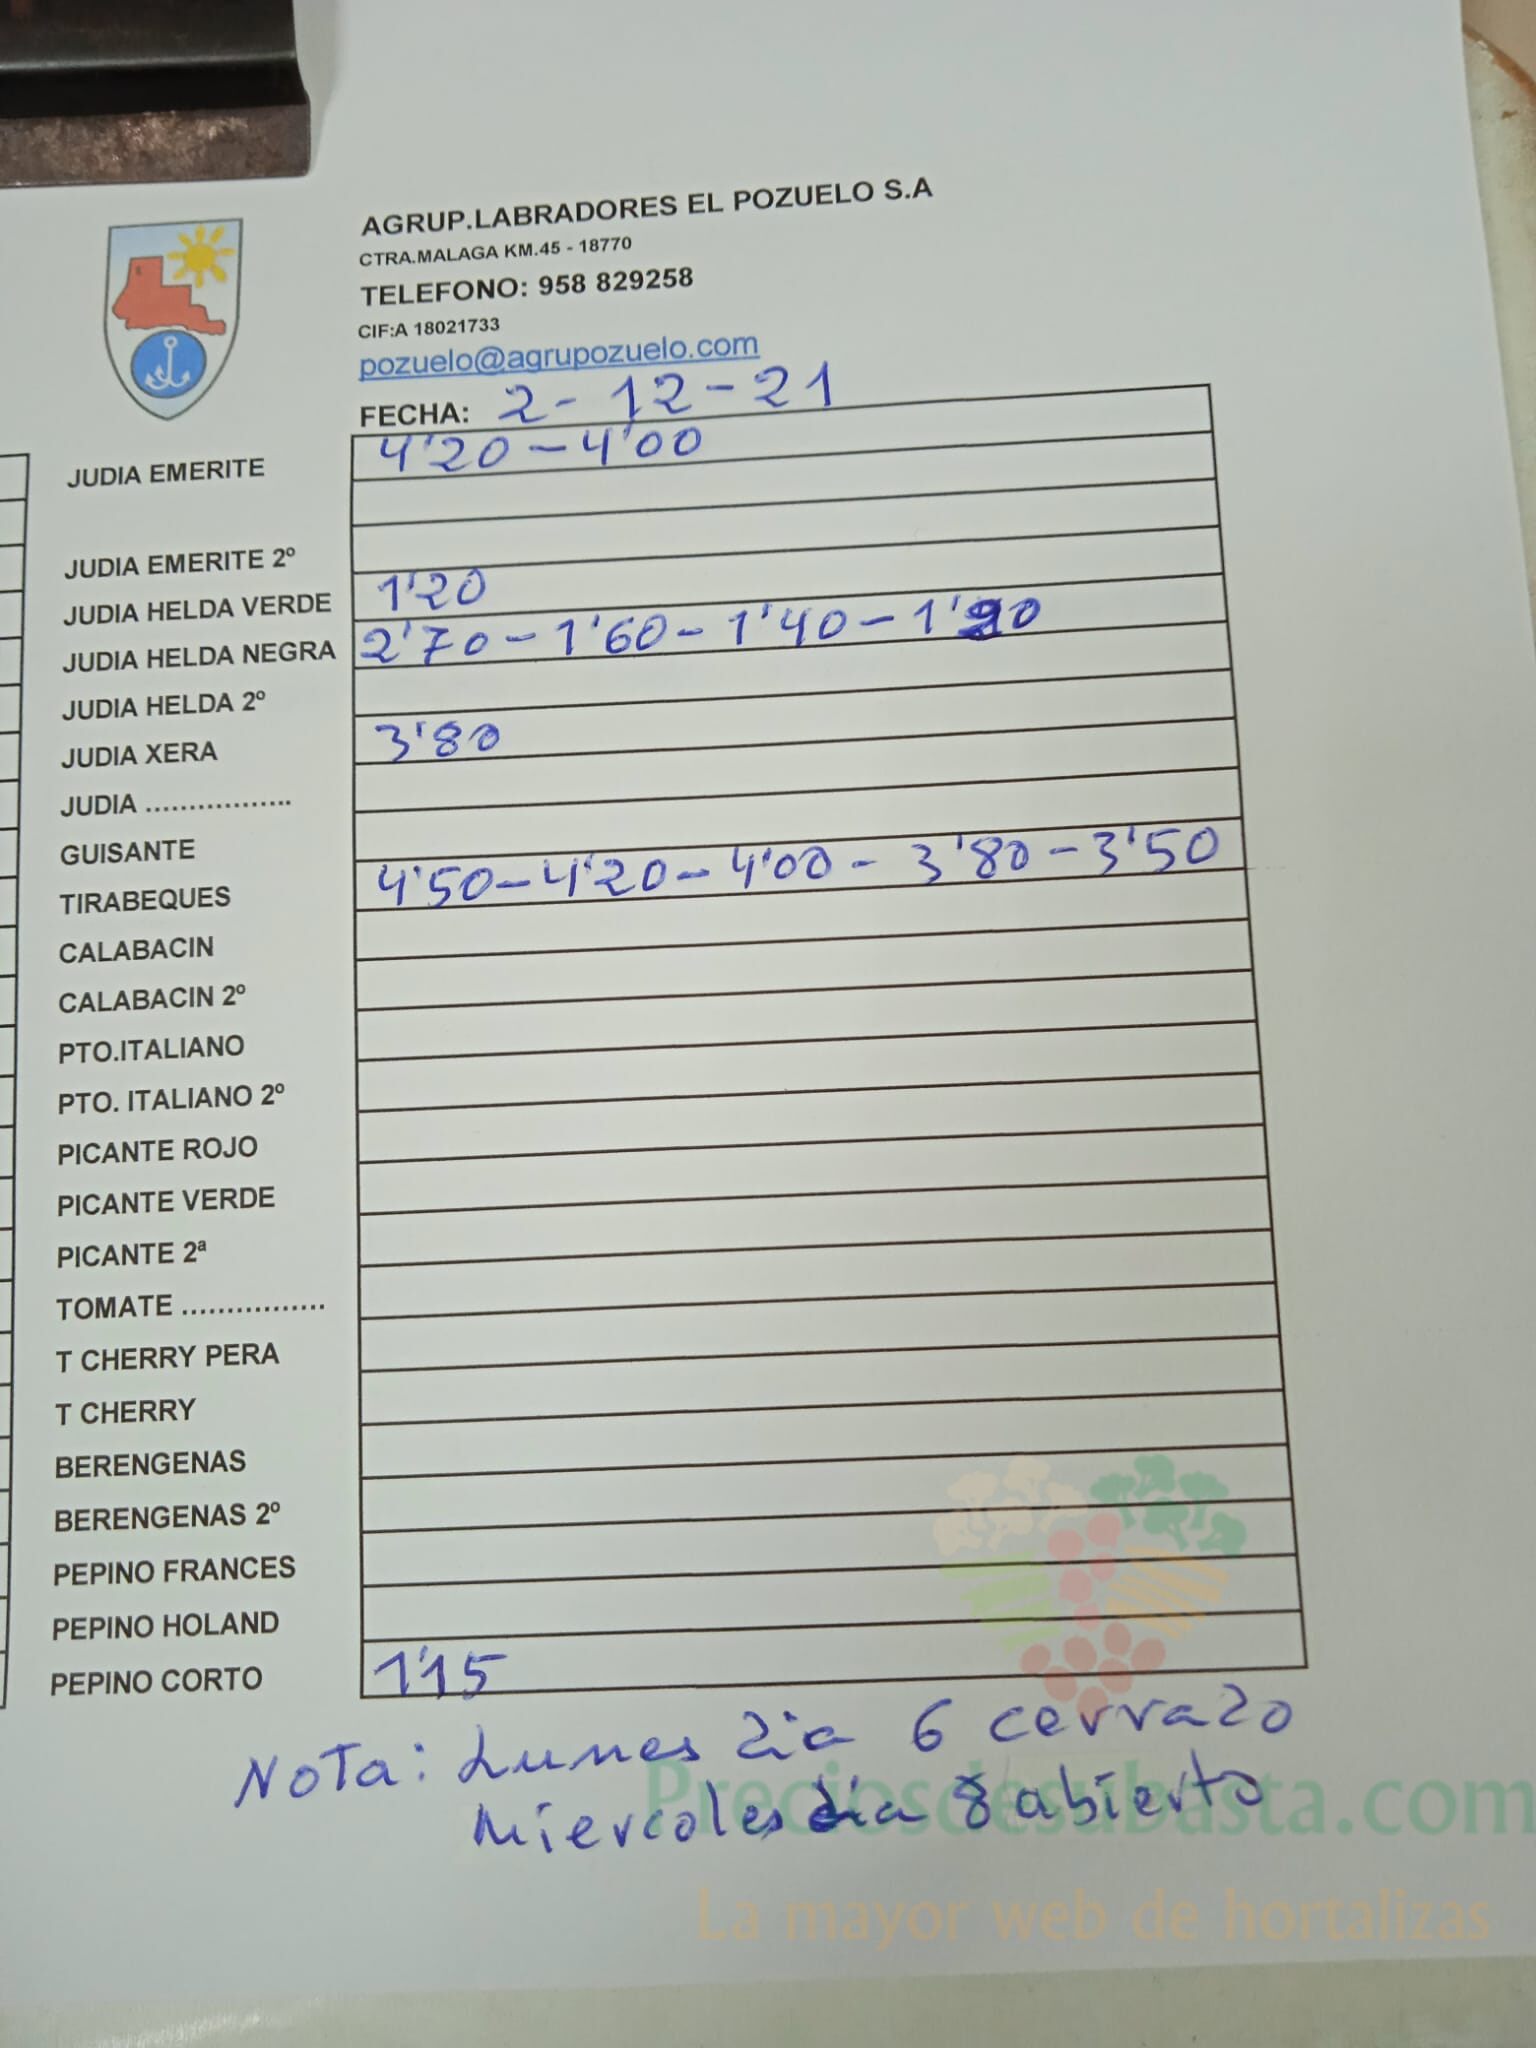 AGRUP.LABRADORES EL POZUELO S.A
CTRA.MALAGA KM.45 - 18770
TELEFONO: 958 829258
CIF:A 18021733
pozuelo@agrupozuelo.com
FECHA: 2-12-21
JUDIA EMERITE 4'20-4'00
JUDIA EMERITE 2º
JUDIA HELDA VERDE 1'20
JUDIA HELDA NEGRA 2'70-1'60-1'40-
JUDIA HELDA 2º
JUDIA XERA 3'80
JUDIA .................
GUISANTE
TIRABEQUES 4'50-4'20-4'00-3'80-3'50
CALABACIN
CALABACIN 2º
PTO.ITALIANO
PTO. ITALIANO 2º
PICANTE ROJO
PICANTE VERDE
PICANTE 2ª
TOMATE ................
T CHERRY PERA
T CHERRY
BERENGENAS
BERENGENAS 2º
PEPINO FRANCES
PEPINO HOLAND
PEPINO CORTO 1'15
NOTA: Lunes dia 6 cerrado
Miercoles dia 8 abierto
Preciosdesubasta.com
La mayor web de hortalizas